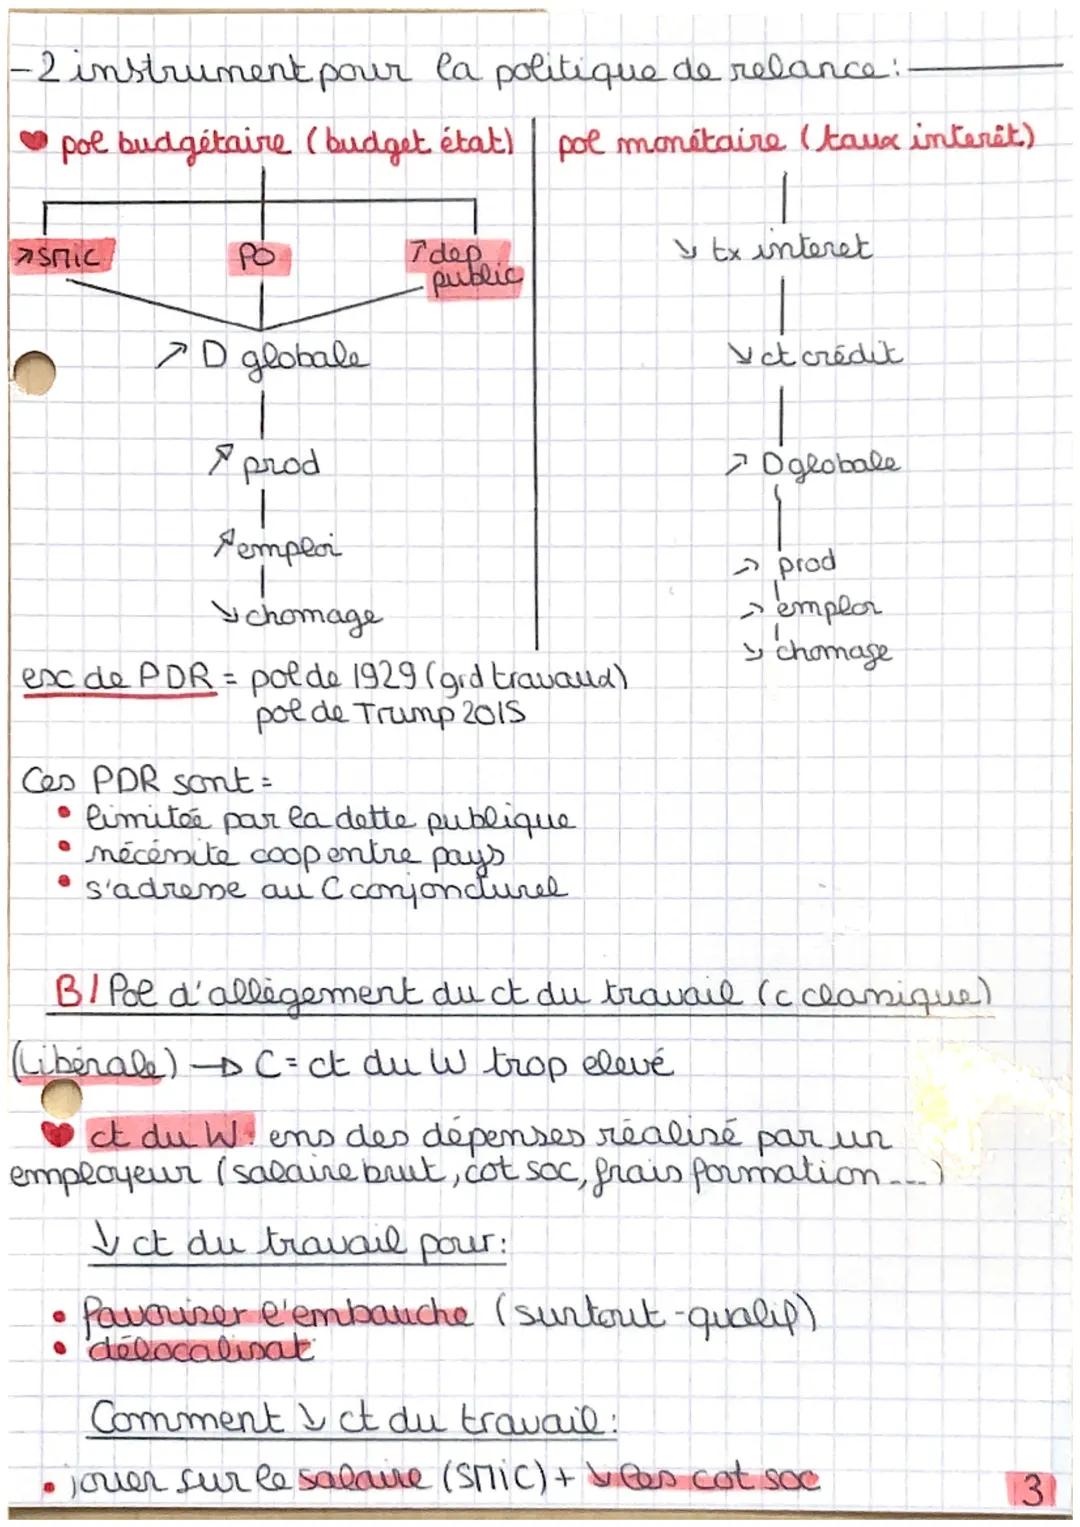 - 2 instrument pour la politique de relance:
pol budgétaire (budget état)
pol monétaire (taux interêt)
↗ SMIC
PO
↗ dep
public
↗ D globale
↗ prod
↗ emploi
↘ chomage
↘ tx interet
↘ ct crédit
↗ D globale
↗ prod
↗ emploi
↘ chomage
ex de PDR = pol de 1929 (grd travaux)
pol de Trump 2015
Ces PDR sont =
• limitée par la dette publique
• nécéssite coop entre pays
• s'adresse au C conjoncturel
B/ Pol d'allègement du ct du travail (c classique)
(Libérale) → C = ct du W trop elevé
ct du W: ens des dépenses réalisé par un
employeur (salaire brut, cot soc, frais formation ...)
↓ ct du travail pour:
• favoriser l'embauche (surtout -qualif)
• délocalisat°
Comment ↘ ct du travail:
• jouer sur le salaire (SMIC) + ↘ les cot soc
3